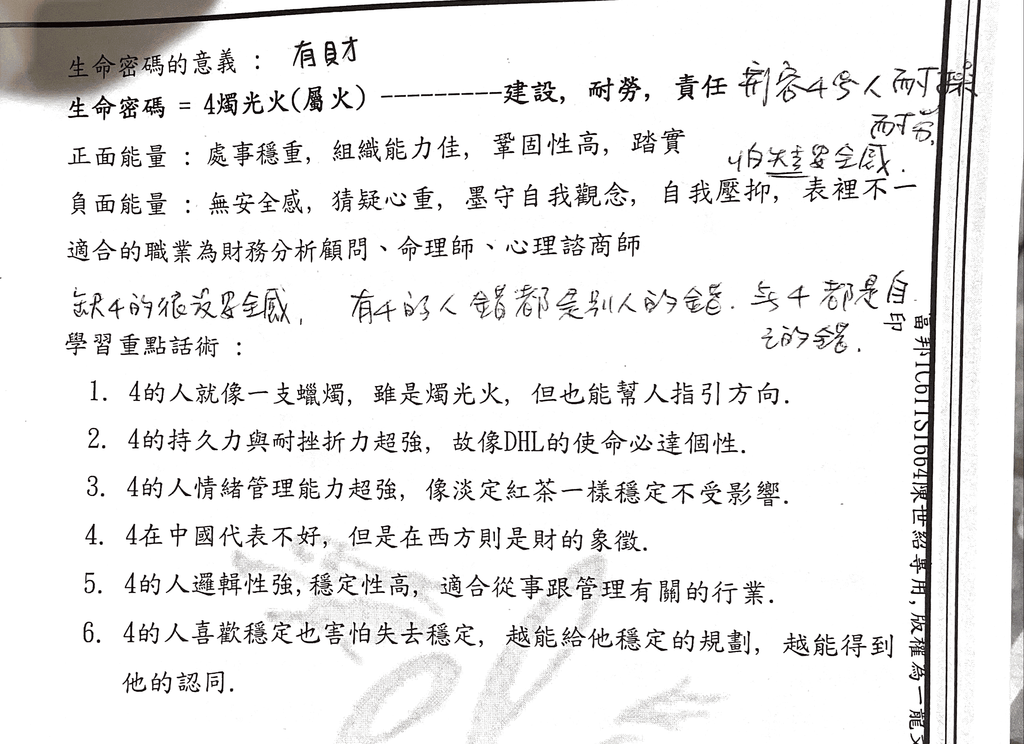 生命密碼的意義 : 有財
生命密碼 = 4燭光火(屬火) ----------建設, 耐勞, 責任 形容4号人耐操
耐劳.
正面能量 : 處事穩重, 組織能力佳, 鞏固性高, 踏實
怕失去安全感.
負面能量 : 無安全感, 猜疑心重, 墨守自我觀念, 自我壓抑, 表裡不一
適合的職業為財務分析顧問、命理師、心理諮商師
缺4的很没安全感, 有4的人錯都是別人的錯. 無4都是自
己的錯.
學習重點話術 :
1. 4的人就像一支蠟燭, 雖是燭光火, 但也能幫人指引方向.
2. 4的持久力與耐挫折力超強, 故像DHL的使命必達個性.
3. 4的人情緒管理能力超強, 像淡定紅茶一樣穩定不受影響.
4. 4在中國代表不好, 但是在西方則是財的象徵.
5. 4的人邏輯性強,穩定性高, 適合從事跟管理有關的行業.
6. 4的人喜歡穩定也害怕失去穩定, 越能給他穩定的規劃, 越能得到
他的認同.
陳世紹專用,版權為一龍
印